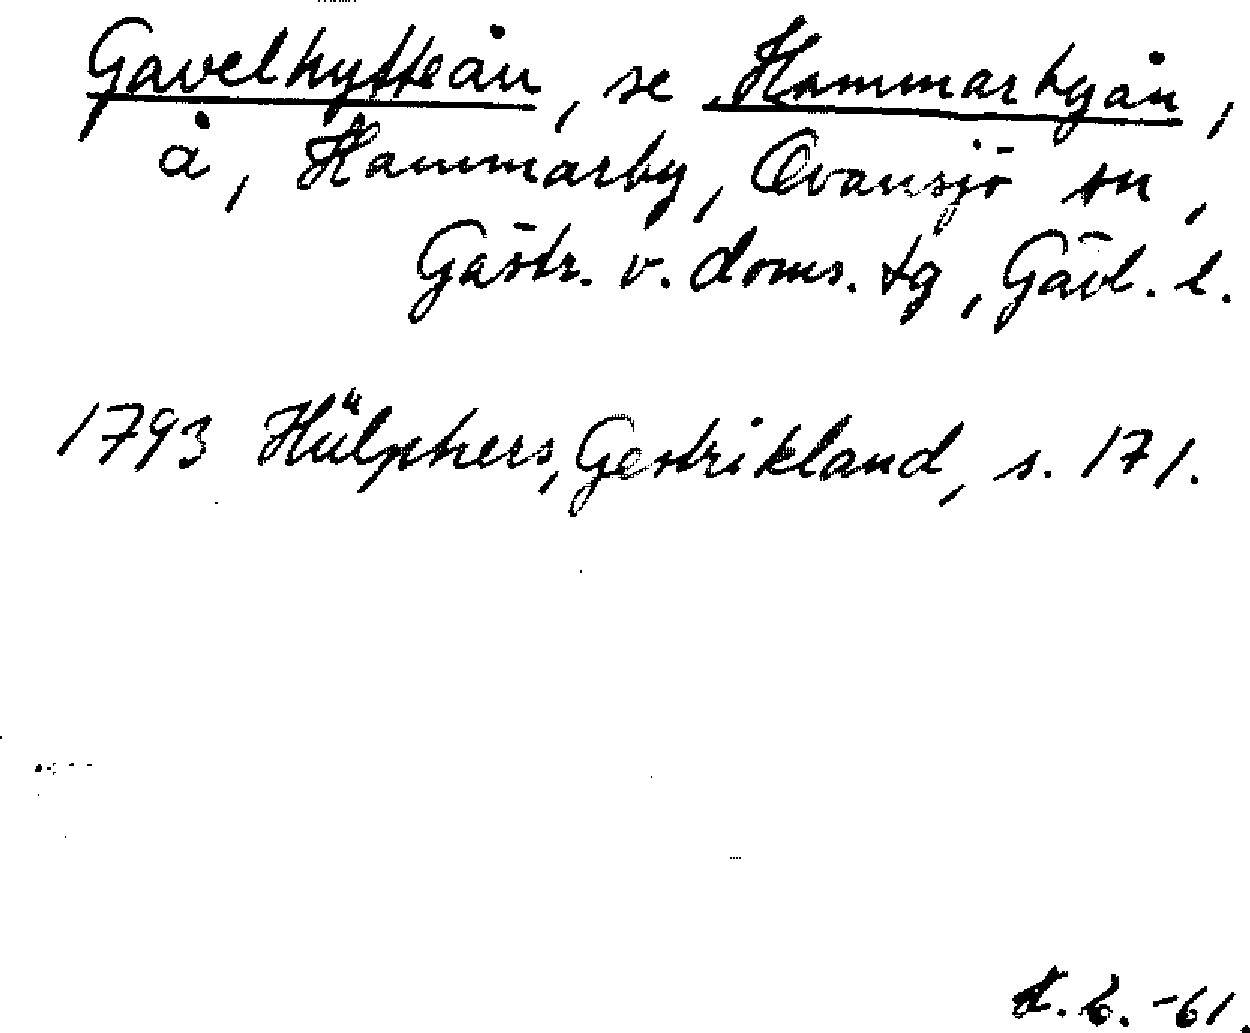 Gavelhytteån, se Hammarbyån,
å, Hammarby, Ovansjö sn,
Gästr. v. doms. tg, Gävl. l.
1793 Hülphers, Gestrikland, s. 171.
-61.